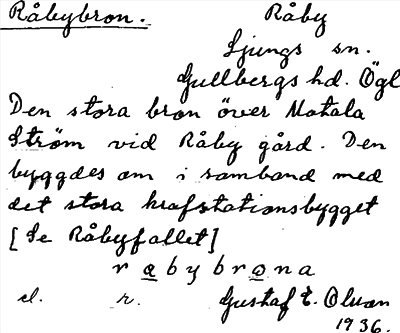 Råbybron. Råby
Ljungs sn.
Gullbergs hd. Ögl
Den stora bron över Motala
Ström vid Råby gård. Den
byggdes om i samband med
det stora krafstationsbygget
[Se Råbyfallet]
r a b y b r o n a
sl. r. Gustaf E. Olson
1936.